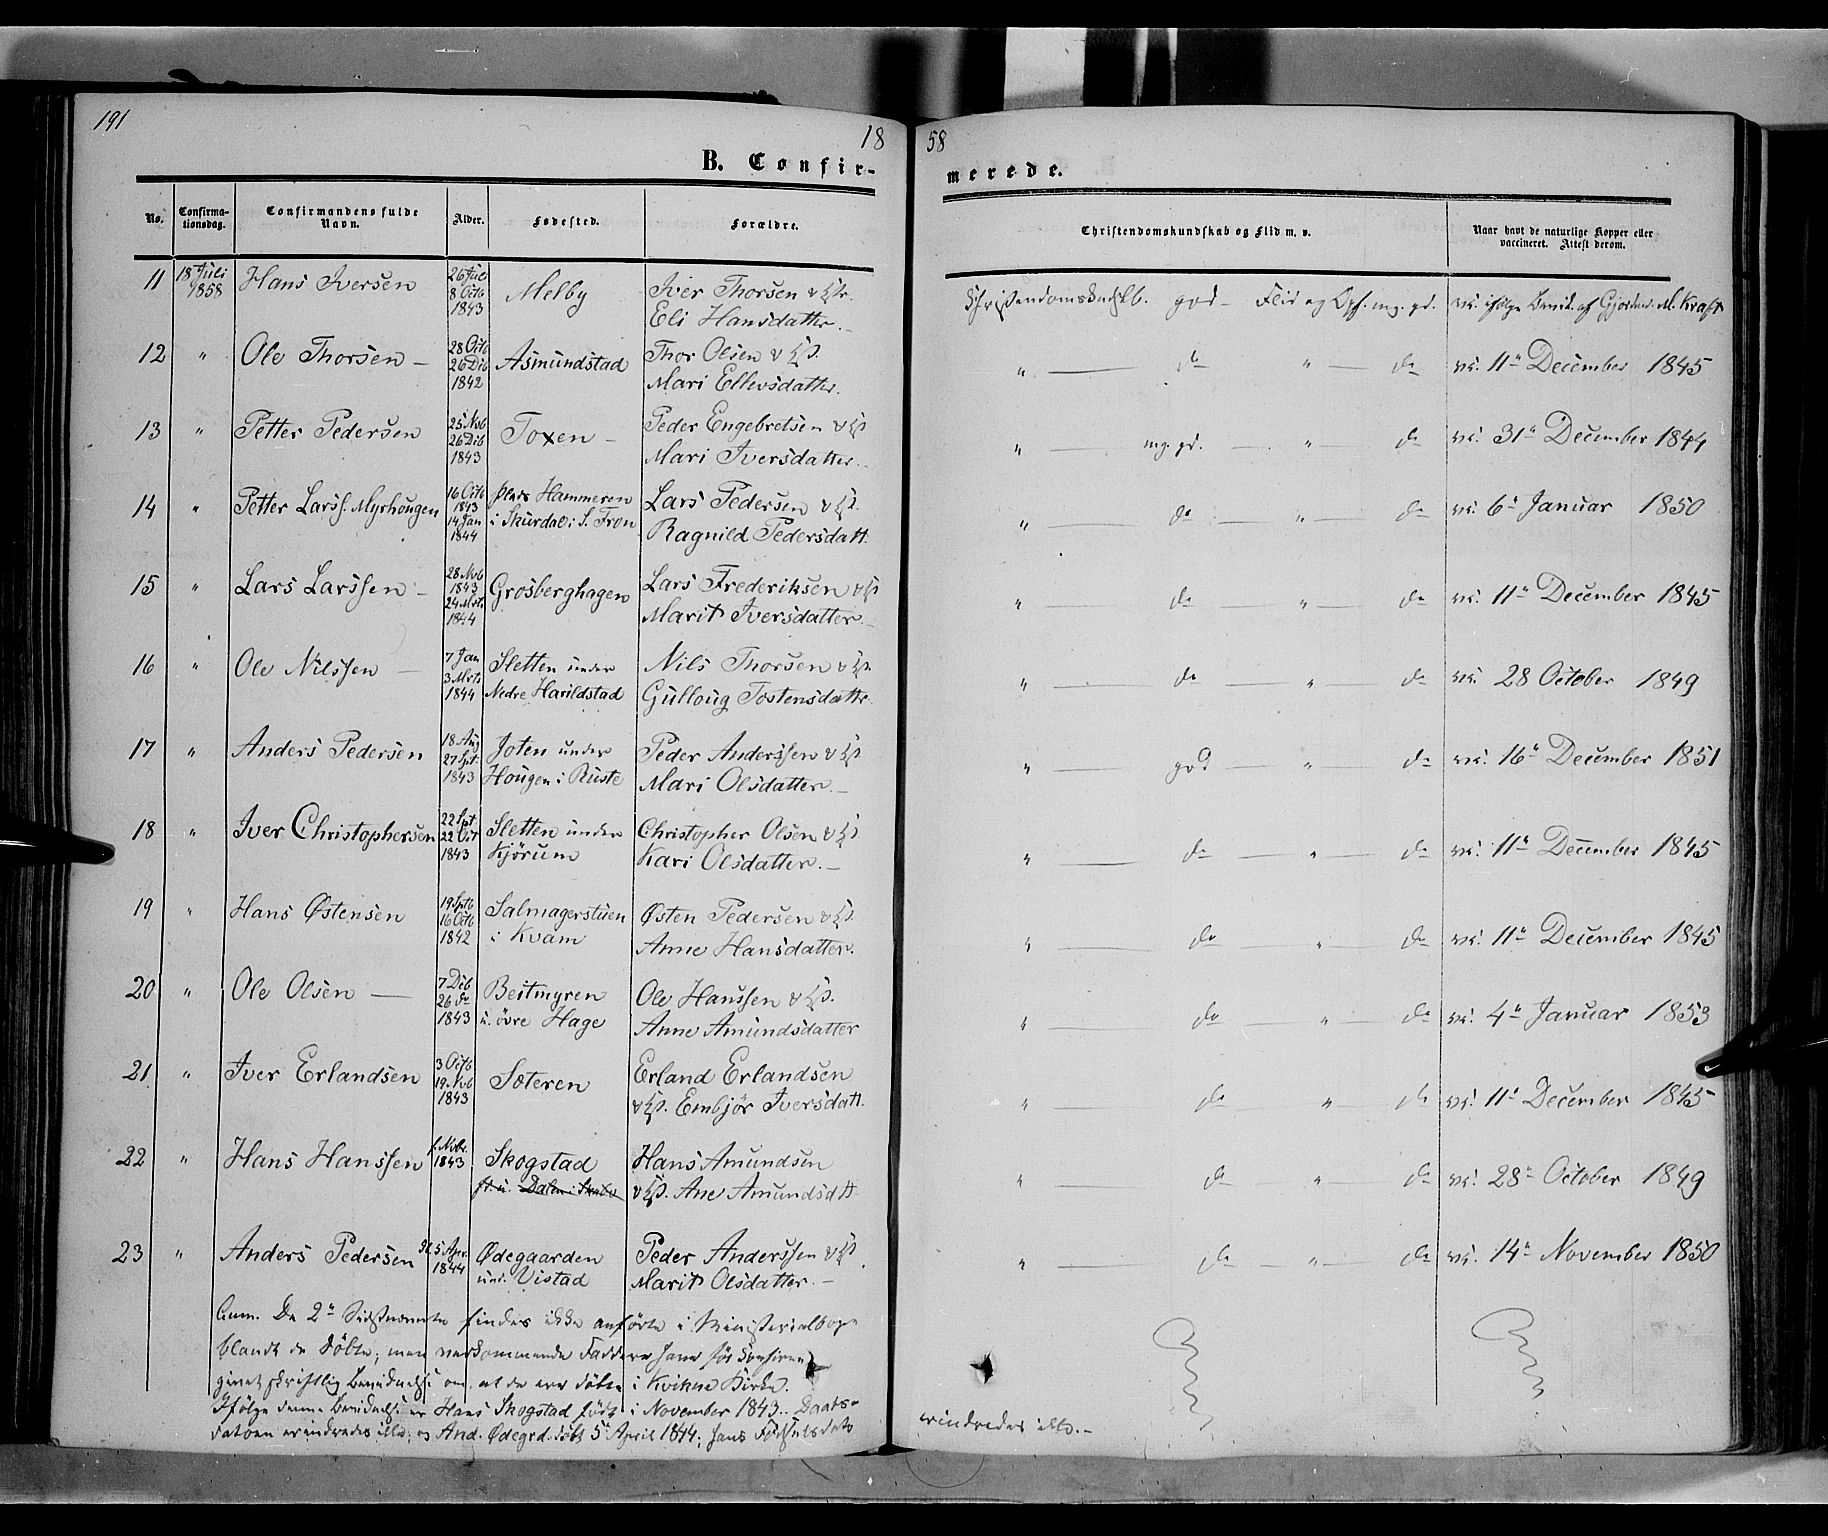 191
18
58
B. Confir-
merede.
No.
Confirma-
tionsdag.
Confirmandens fulde
Navn.
Alder.
Fødested.
Forældre.
Christendomskundskab og Flid m. v.
Naar havt de naturlige Kopper eller
vaccineret. Attest derom.
11 18 Juli 1858 Hans Iversen 26 Juli 8 Octb 1843 Melby Iver Thorsen & Eli Hansdatter. god - Flid og Opf. mg. gd. vc. ifølge af M. Kraft
12 " Ole Thorsen - 28 Octb 26 Dcb 1842 Asmundstad Thor Olsen & Mari Ellevsdatter. " do " do vc. 11te December 1845
13 " Petter Pedersen 25 Nvb 26 Dcb 1843 Toxen - Peder Engebretsen & Mari Iversdatter. " mg. gd. " do vc. 31te December 1844
14 " Petter Larss. Myrhougen 16 Octb 1843 14 Jan 1844 plads Hammeren i Skurdal i S. Fron Lars Pedersen & Ragnild Pedersdatt. " do " do vc. 6te Januar 1850
15 " Lars Larssen - 28 Nvb 1843 24 Mrts 1844 Grosberghagen Lars Frederiksen & Marit Iversdatter. " do " do vc. 11te December 1845
16 " Ole Nilssen - 7 Jan 3 Mrts 1844 Sletten under Nedre Harildstad Nils Thorsen & Gulloug Tostensdatter " do " do vc. 28 October 1849
17 " Anders Pedersen 18 Aug 27 Spt. 1843 Joten under Hougen i Ruste Peder Anderssen & Mari Olsdatter. - " god " do vc. 16te December 1851
18 " Iver Christophersen 22 Spt. 22 Oct 1843 Sletten under Kjørum Christopher Olsen & Kari Olsdatter. - " do " do vc. 11te December 1845
19 " Hans Østensen 19 Sptb 16 Octb 1842 Salmagerstuen i Kvam Østen Pedersen & Anne Hansdatter. " do " do vc. 11te December 1845
20 " Ole Olsen - 7 Dcb 26 do 1843 Beitmyren u. övre Hage Ole Hanssen & Anne Amundsdatter " do " do vc. 4de Januar 1853
21 " Iver Erlandsen 3 Octb 19 Nvb 1843 Sæteren Erland Erlandsen & Embjör Iversdatt. " do " do vc. 11te December 1845
22 " Hans Hanssen f. Nvbr. 1843 Skogstad Hans Amundsen & Ane Amundsdtt. " do " do vc. 28de October 1849
23 " Anders Pedersen 5 Apr. 1844 Ødegaarden und. Vistad Peder Anderssen & Marit Olsdatter. - " do " do vc. 14de November 1850
Anm. De 2de Sidstnævnte findes ikke anförte i Ministerialbogen
blandt de Döbte; men vedkommende Faddere have för
givet skriftlig Bevidnelse om, at de ere döbte i Kvikne Kirke.
Ifölge denne Bevidnelse er Hans Skogstad födt i November 1843. Daabs-
datoen erindredes ikke; og And. Ødegrd. döbt 5 April 1844; hans Födselsdato
erindredes ikke. -